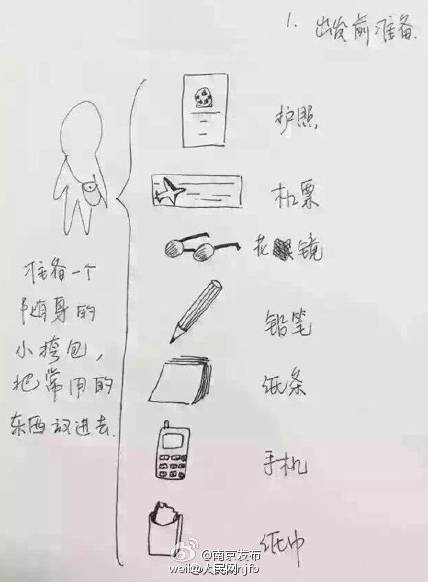 1. 出发前准备.
护照
机票
花镜
铅笔
纸条
手机
纸巾
准备一个
随身的
小挎包,
把常用的
东西放进去.
@南京发布
weil@人民网njfb